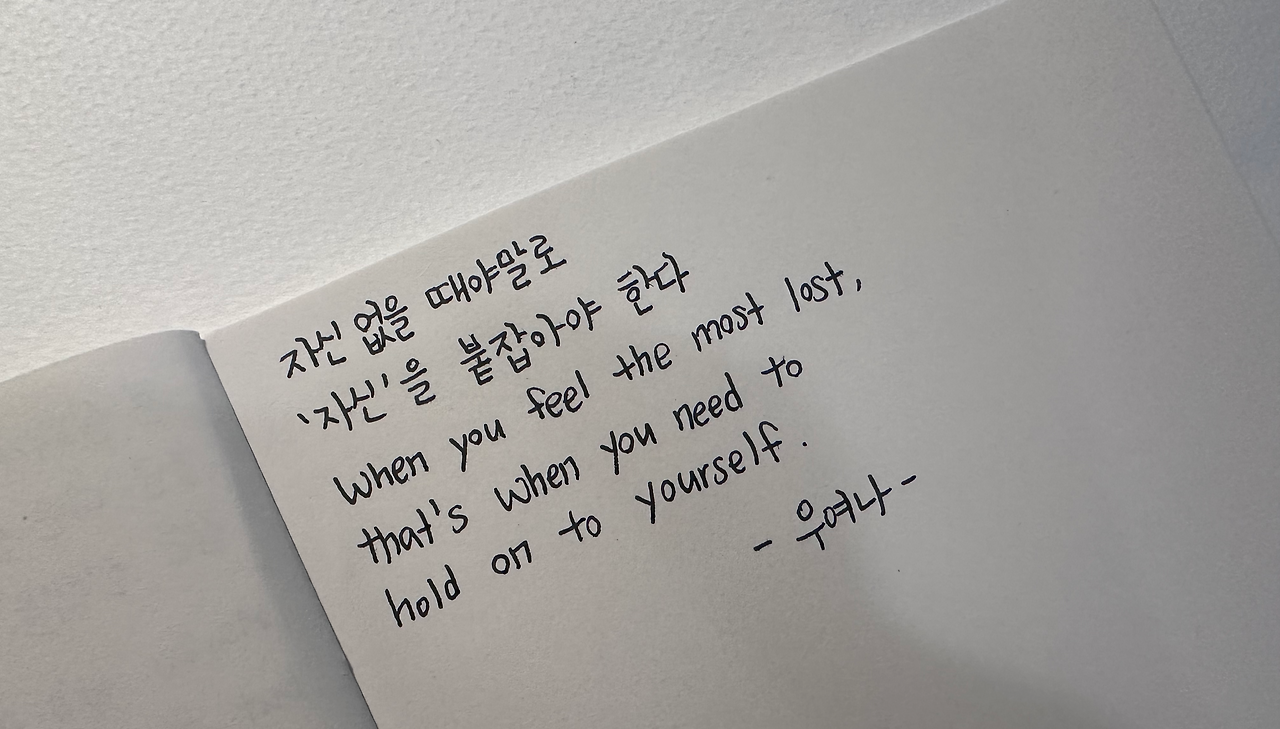 자신 없을 때야말로
'자신'을 붙잡아야 한다
When you feel the most lost,
that's when you need to
hold on to yourself.
- 우여나 -